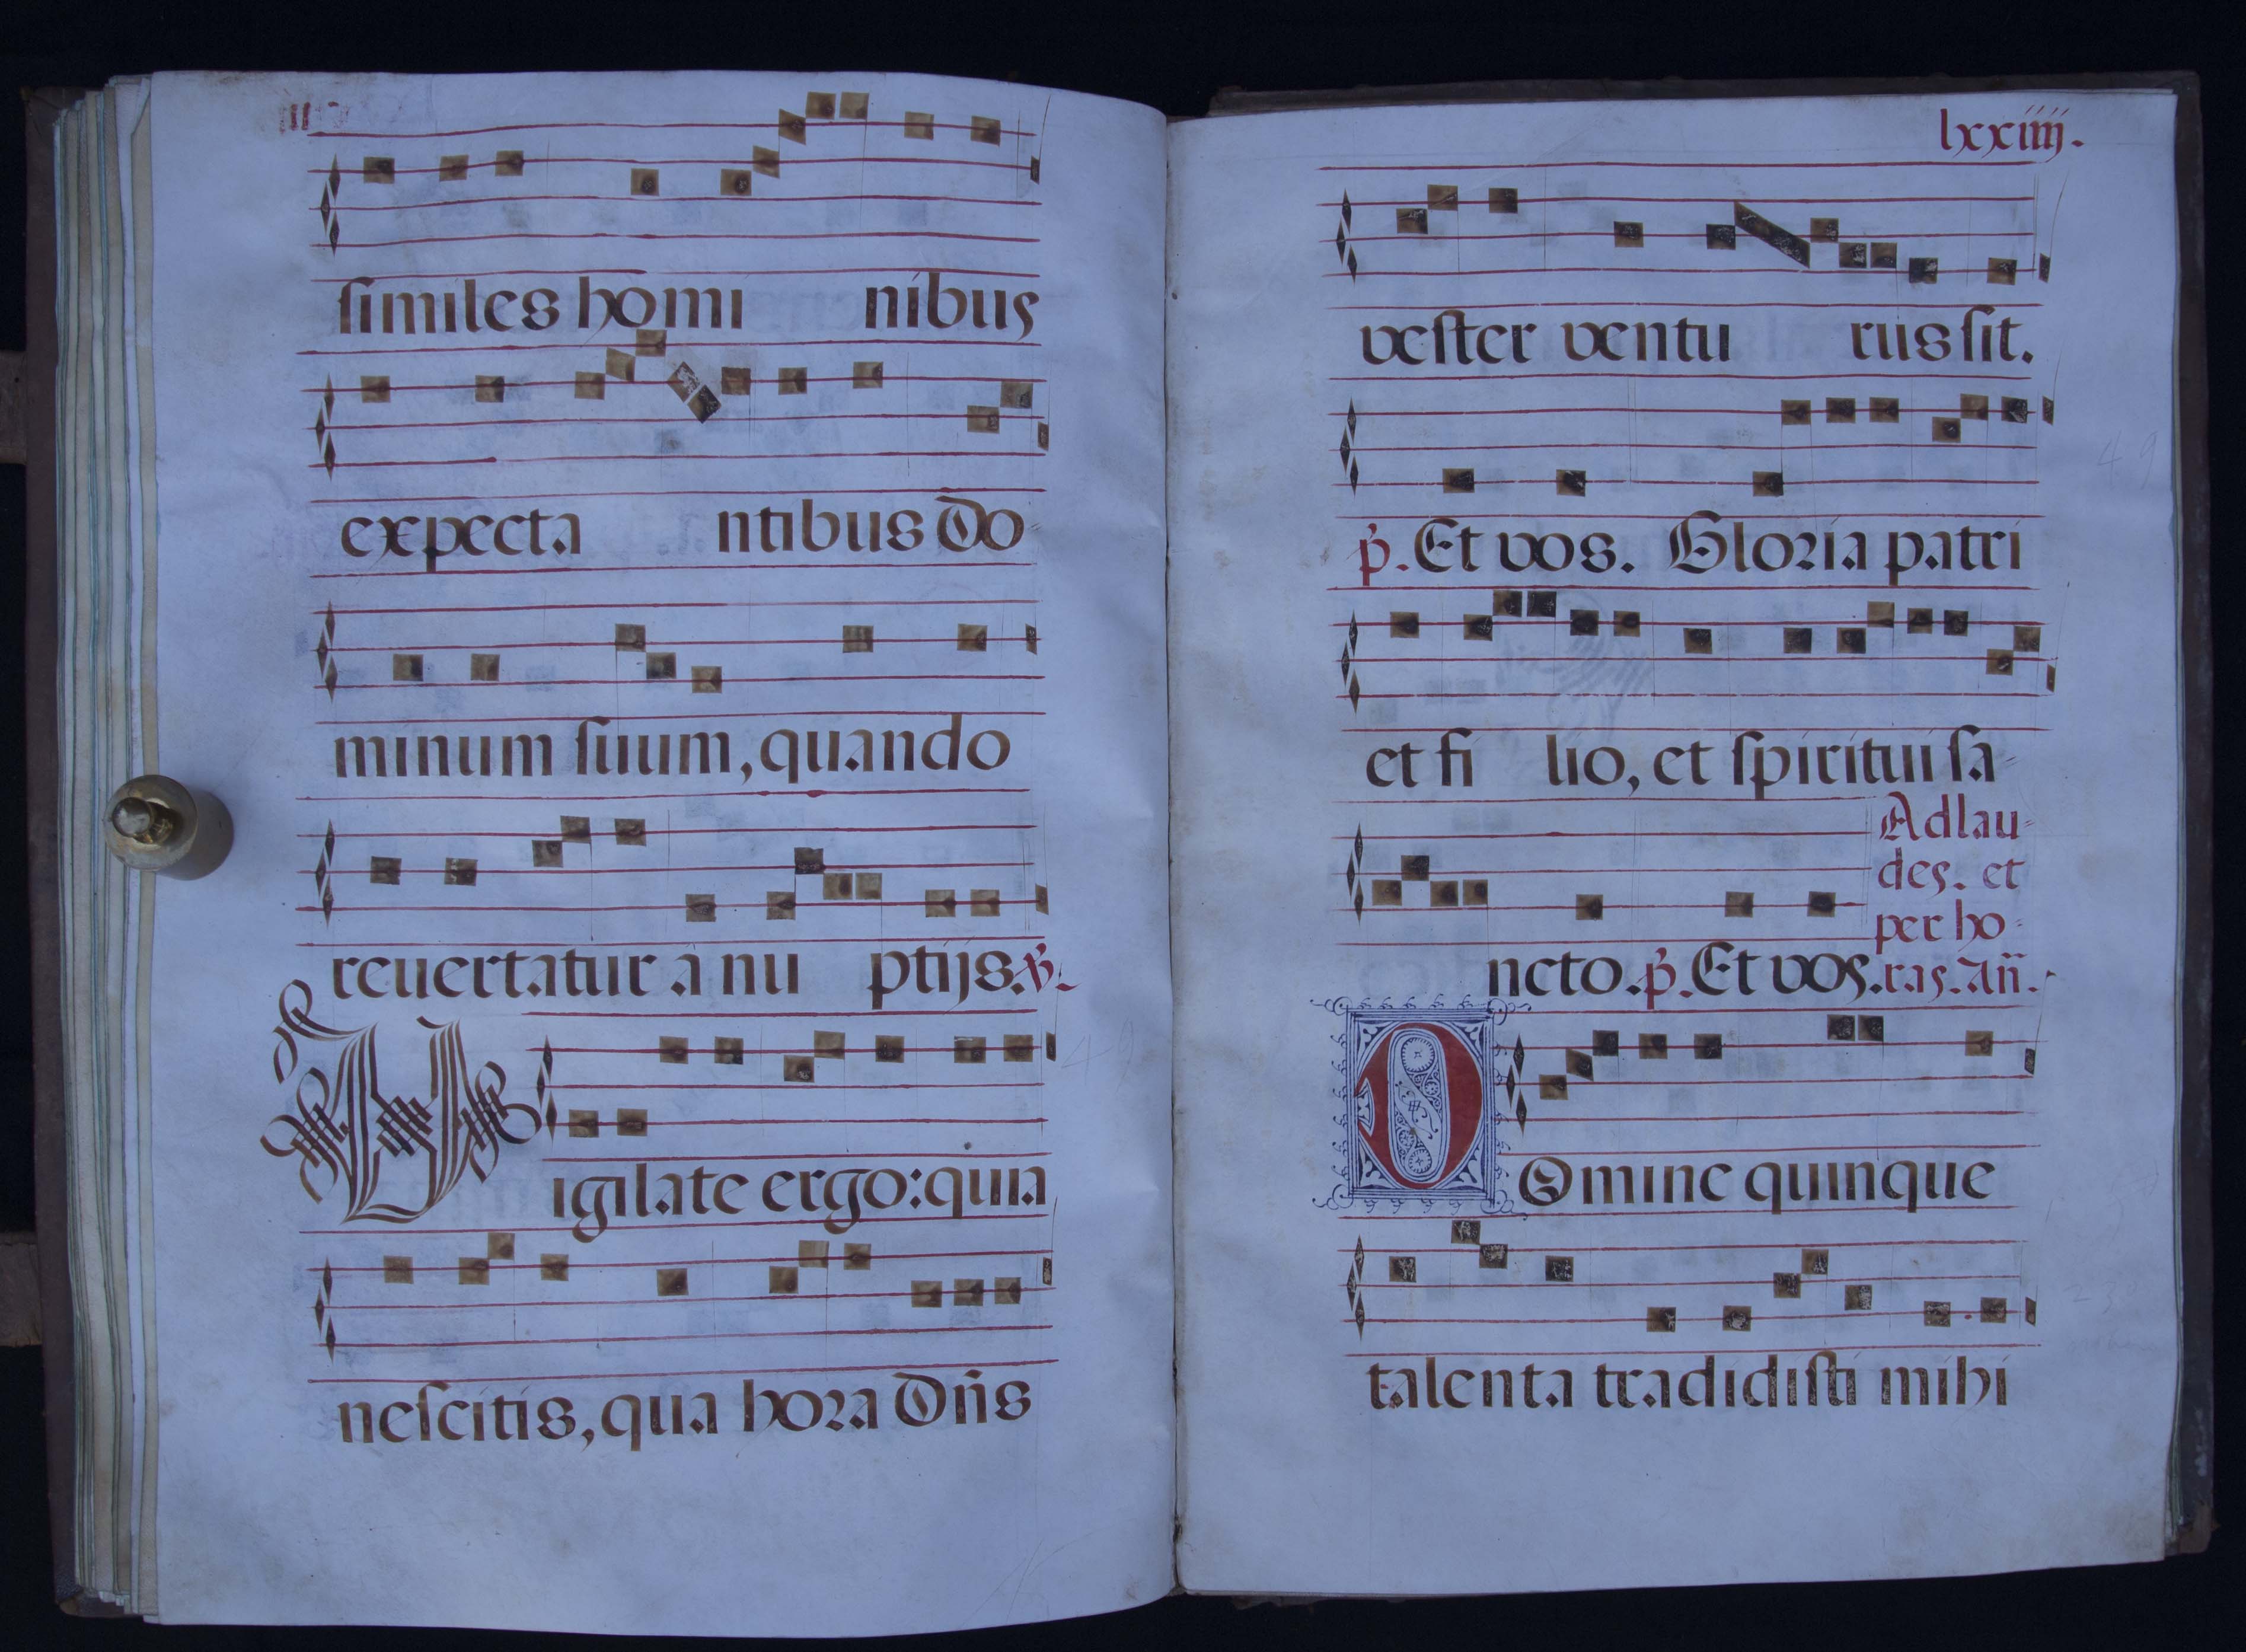 similes homi nibus
expecta ntibus do-
minum suum, quando
reuertatur à nu ptijs. ℣.
Vigilate ergo: quia
nescitis, qua hora Dñs
lxxiiij.
vester ventu rus sit.
p̃. Et vos. Gloria patri
et fi lio, et spiritui sa-
ncto. p̃. Et vos.
Ad lau-
des. et
per ho-
ras. Añ.
DOmine quinque
talenta tradidisti mihi